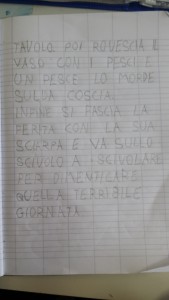 TAVOLO POI ROVESCIA IL
VASO CON I PESCI E
UN PESCE LO MORDE
SULLA COSCIA
INFINE SI FASCIA LA
FERITA CON LA SUA
SCIARPA E VA SULLO
SCIVOLO A SCIVOLARE
PER DIMENTICARE
QUELLA TERRIBILE
GIORNATA.